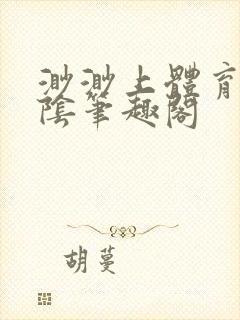 渺渺上體育
陰筆趣閣
胡蔓